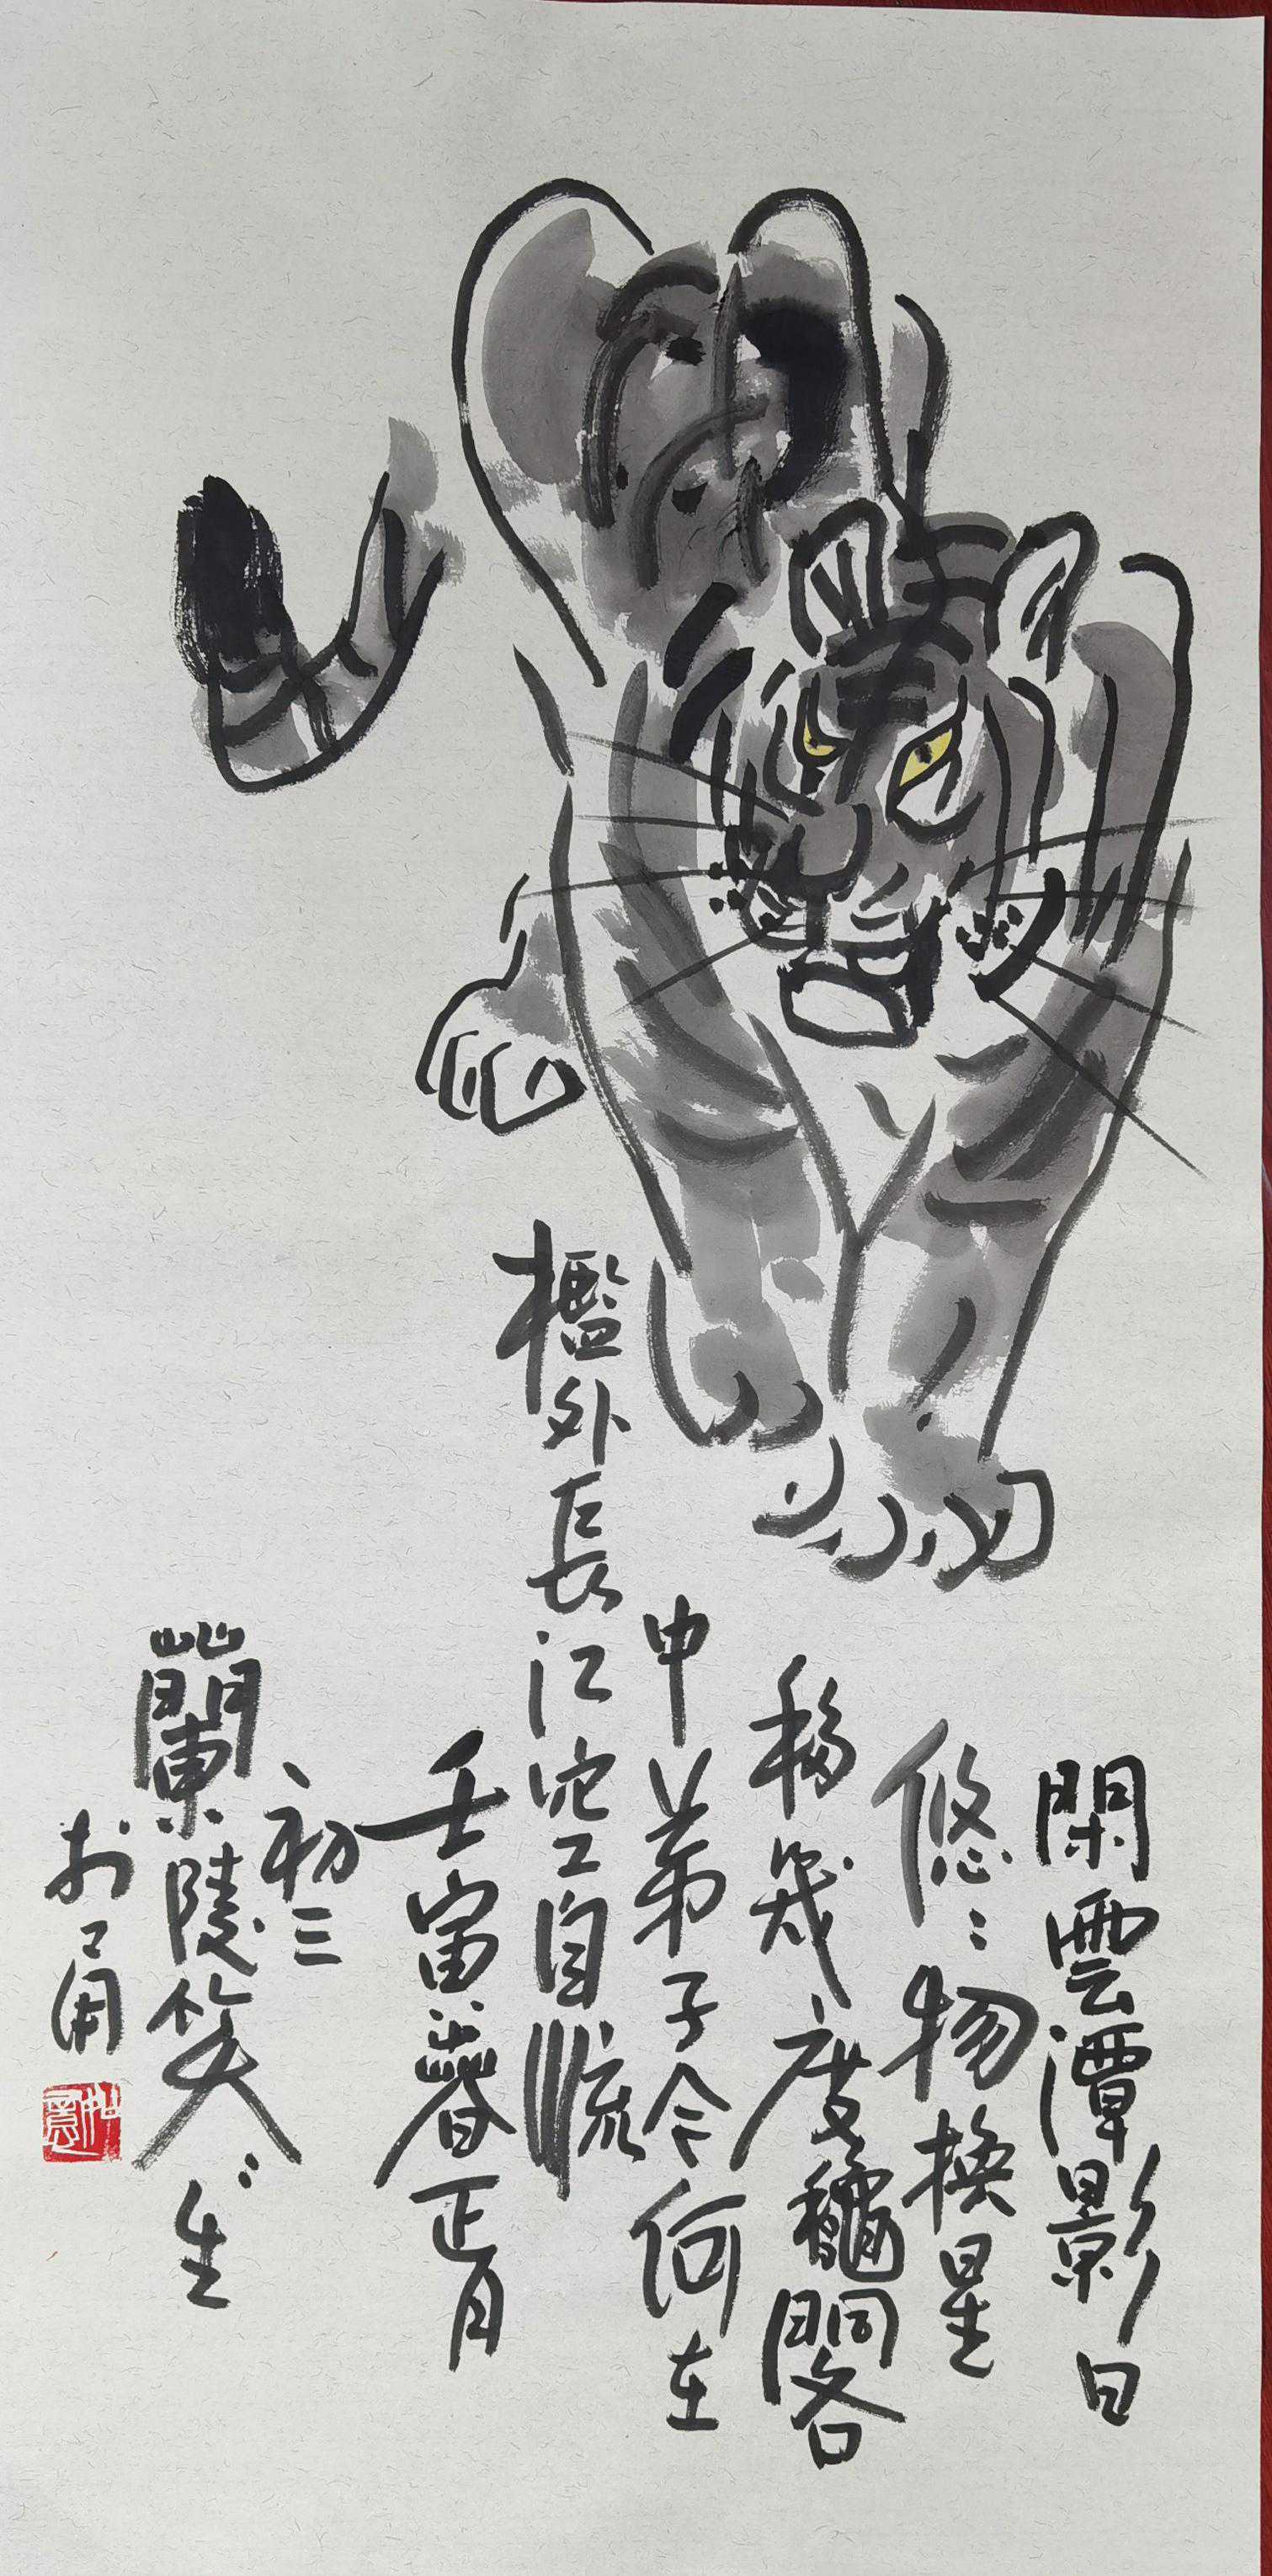 閑雲潭影日
悠〻物換星
移幾度龝閣
中弟子今何在
檻外長江空自流
壬寅暮正月
初三
蘭陵笑笑生
於